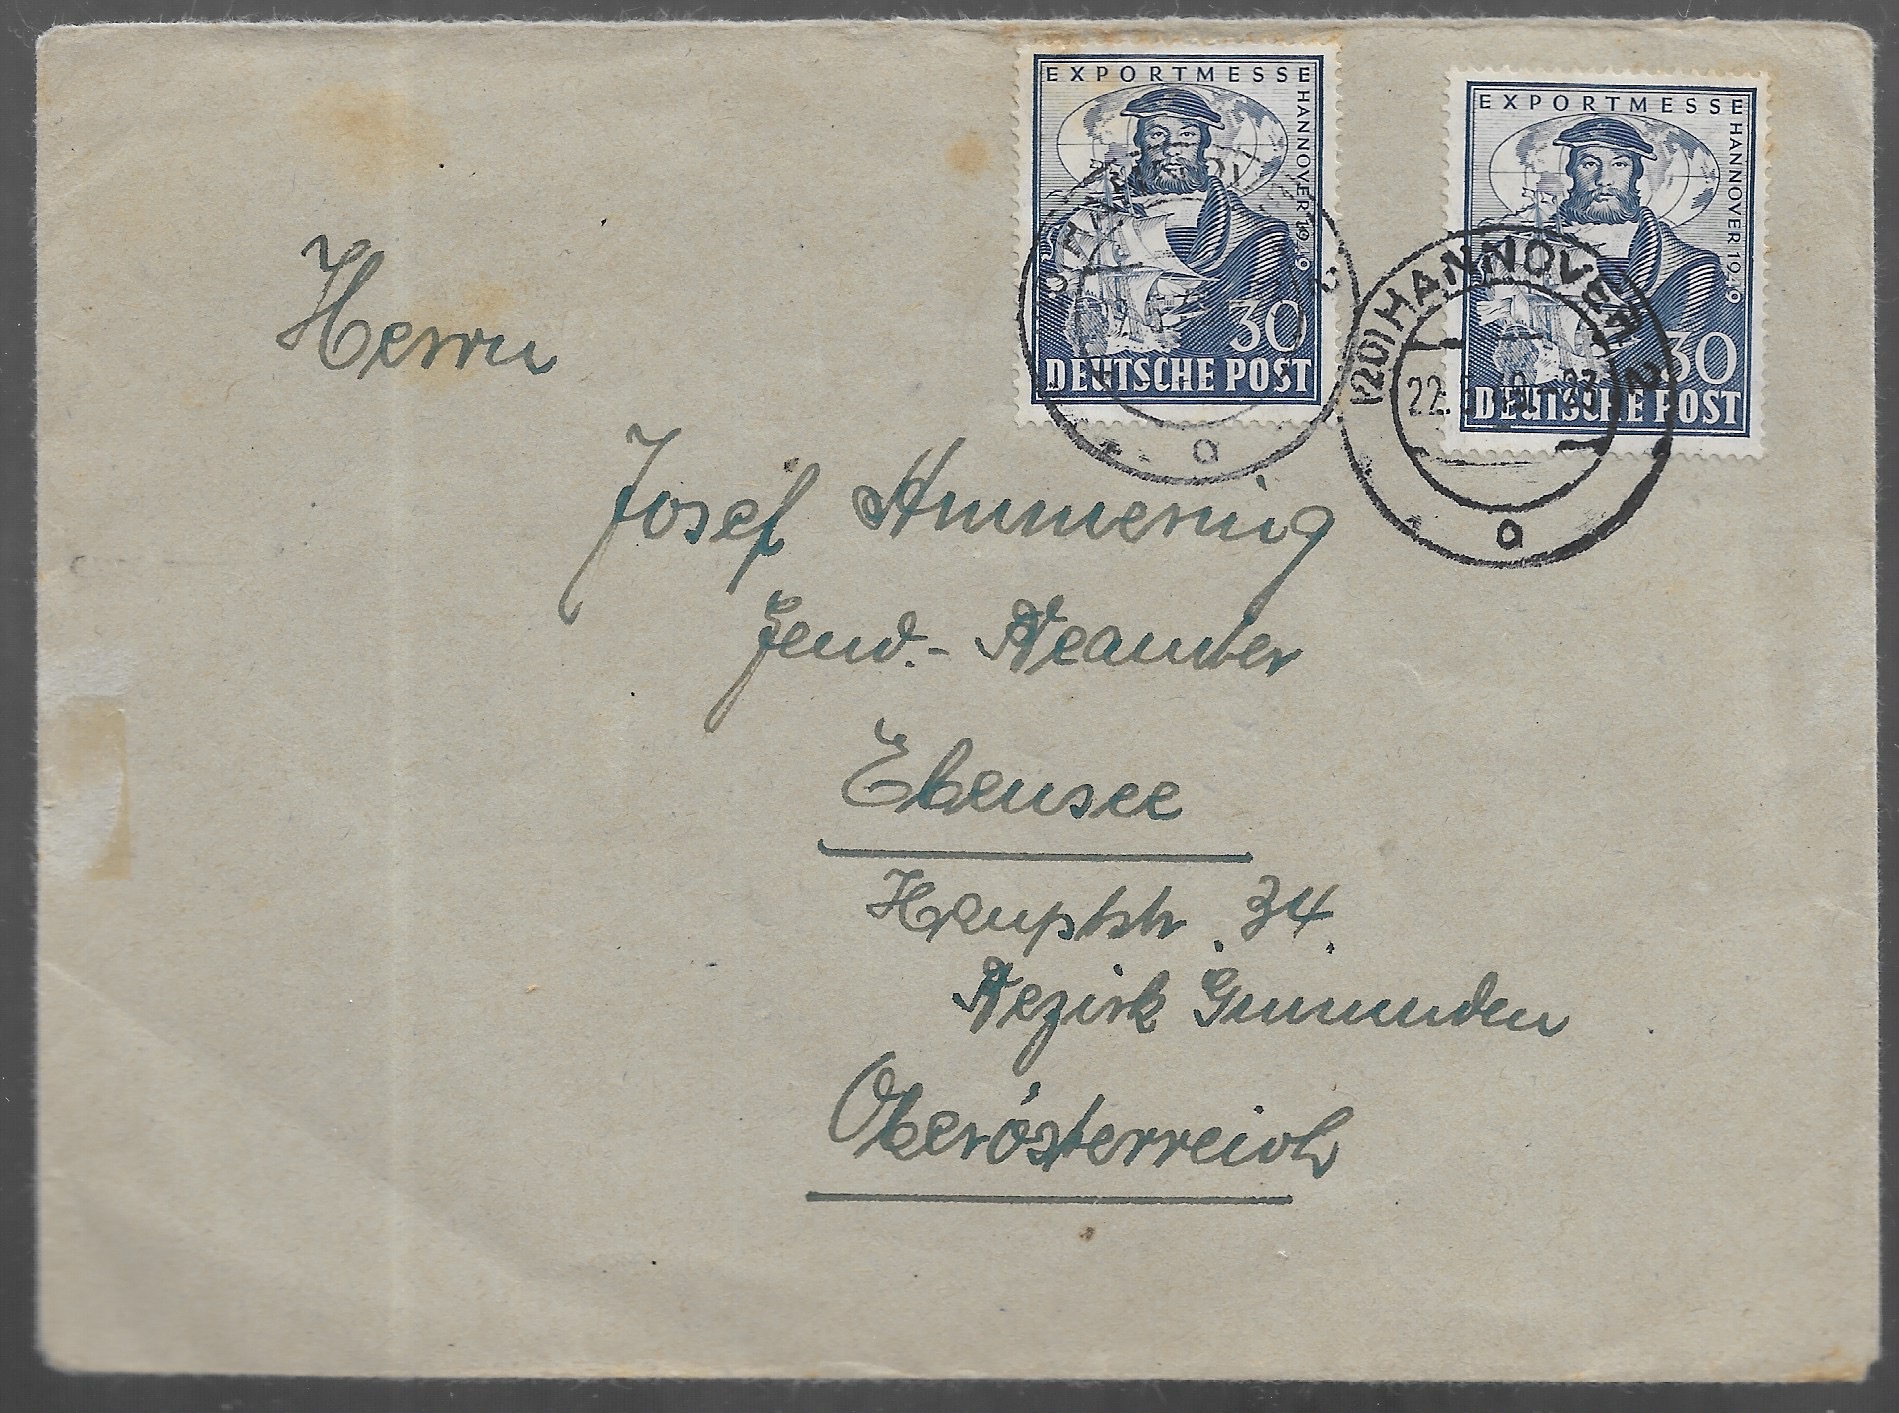 EXPORTMESSE HANNOVER 1949
30
DEUTSCHE POST
EXPORTMESSE HANNOVER 1949
30
DEUTSCHE POST
(20) HANNOVER
22.
a
a
Herrn
Josef
Gend.-Beamter
Ebensee
Hauptstr. 34.
Bezirk Gmunden
Oberösterreich